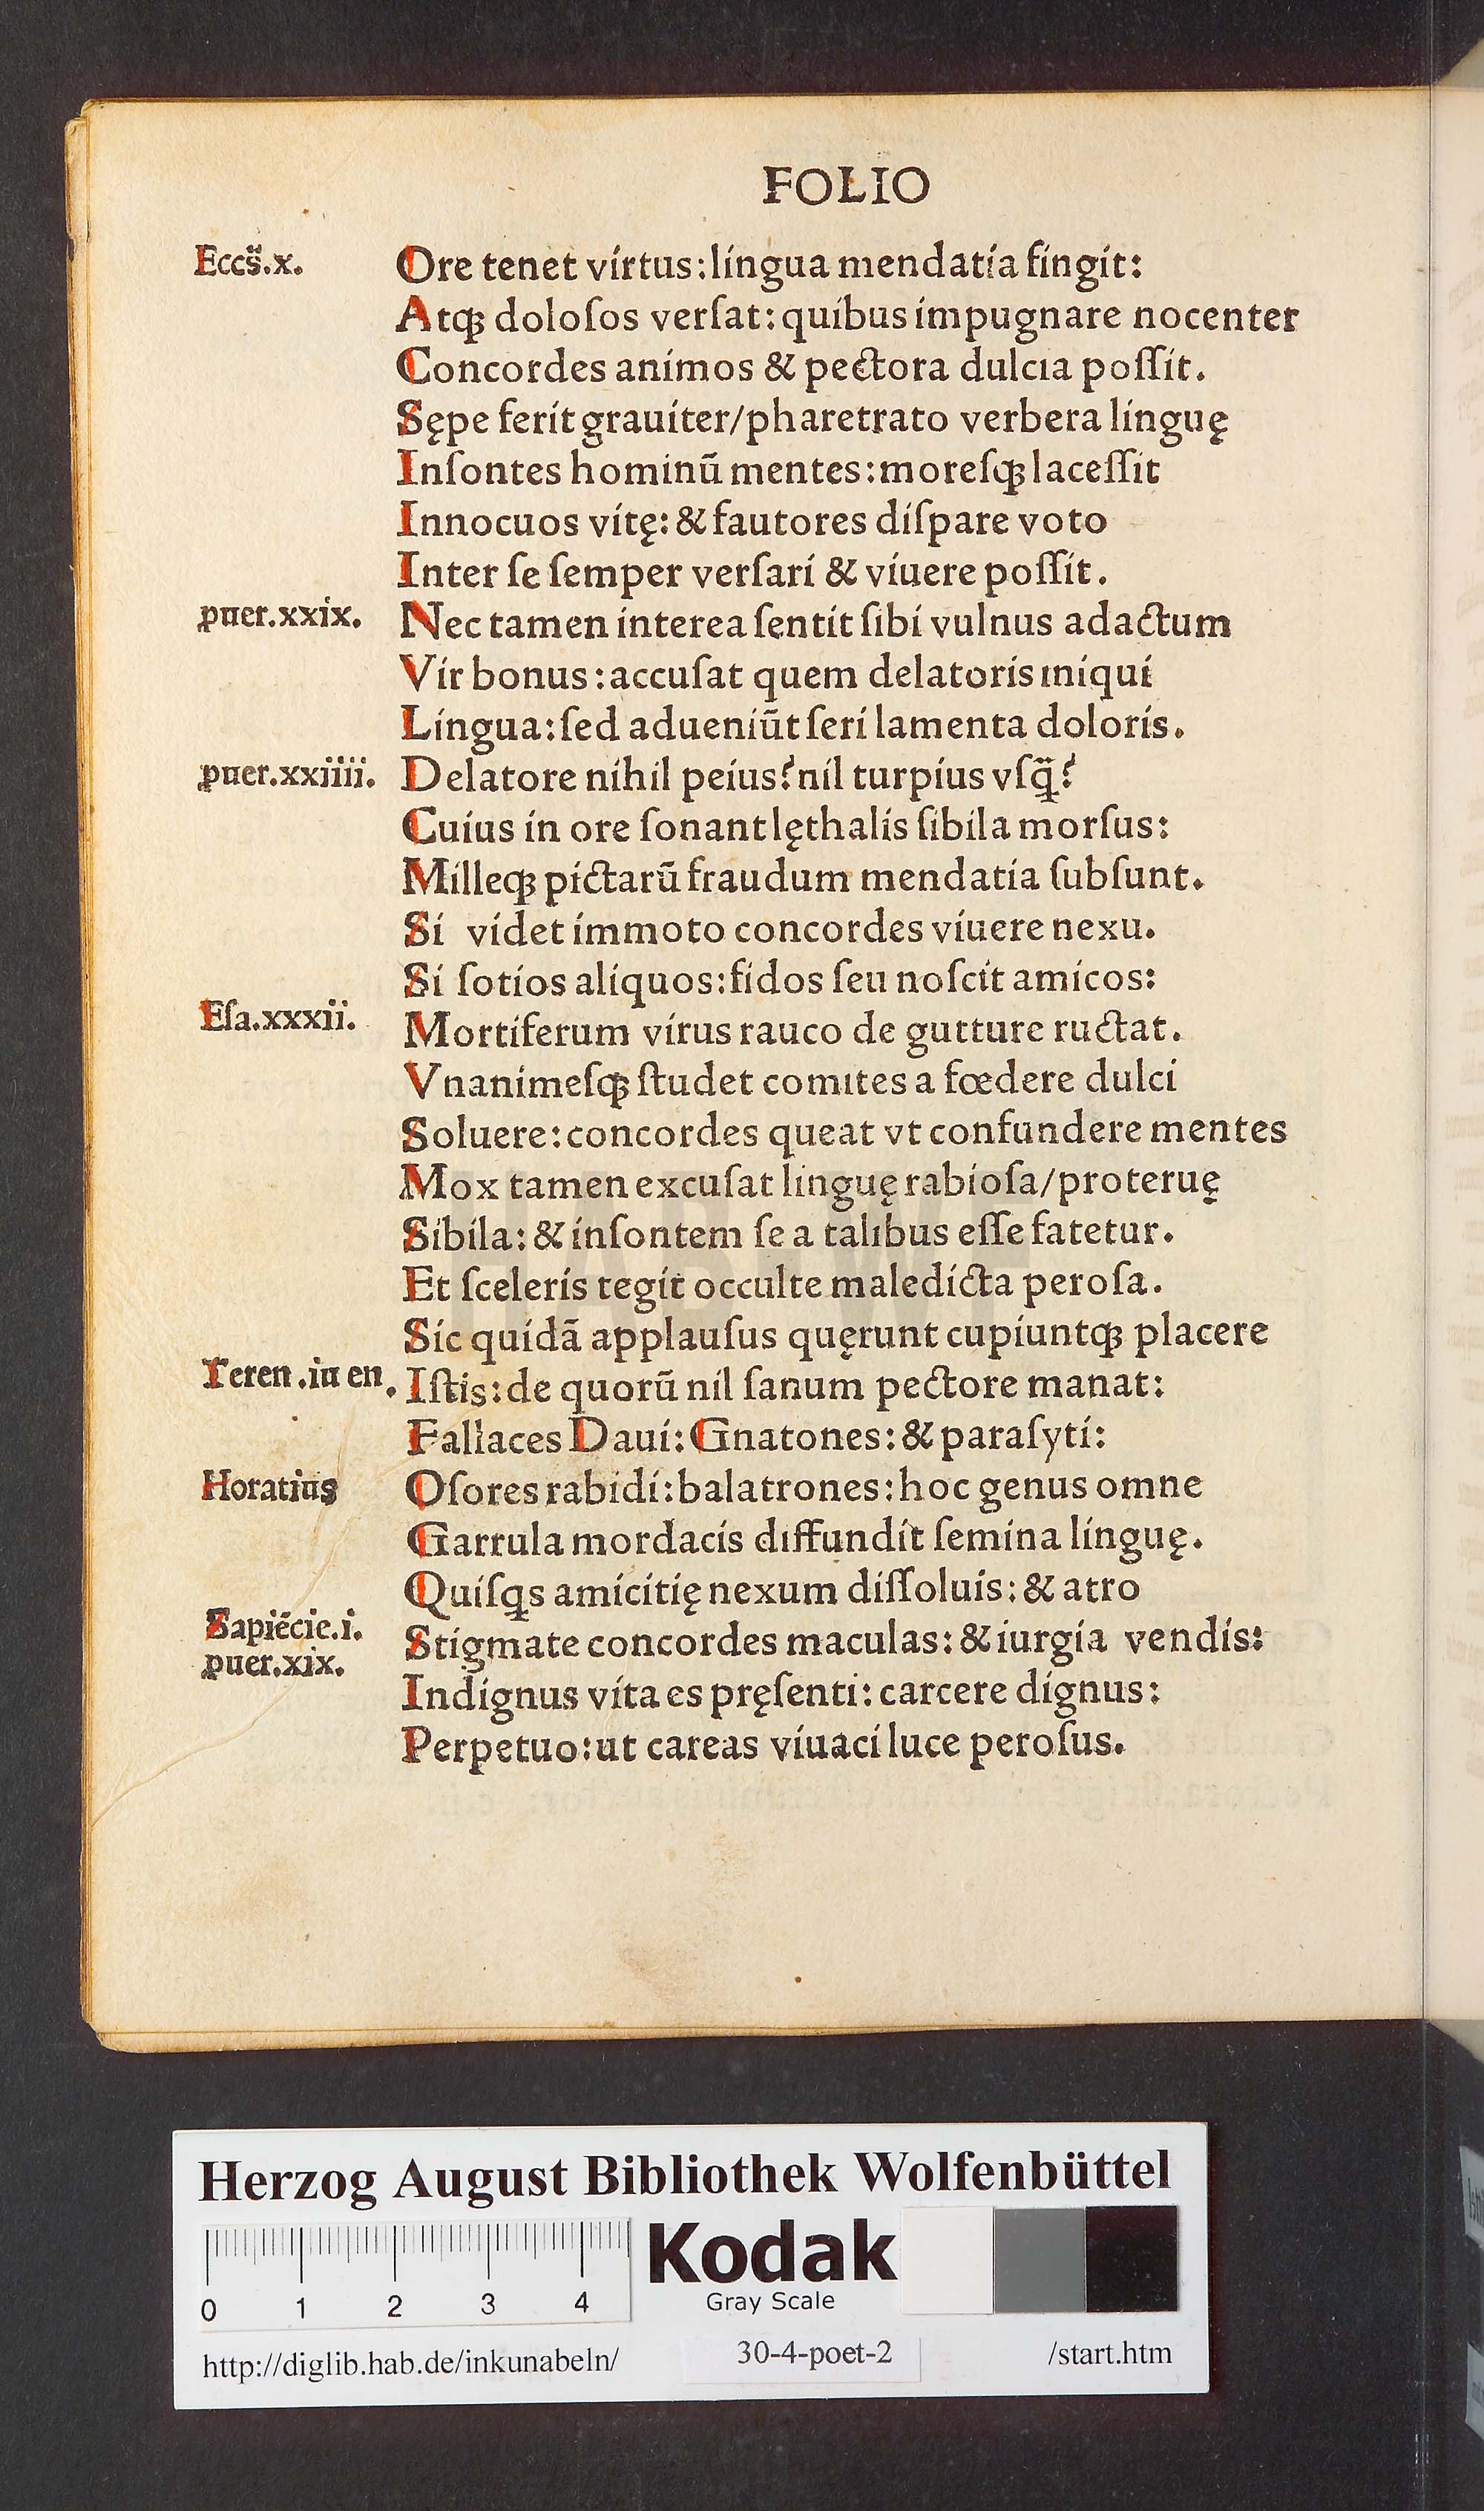 FOLIO
Eccs̄.x.
Ore tenet virtus:lingua mendatia fingit:
Atq; doloſos verſat:quibus impugnare nocenter
Concordes animos & pectora dulcia poſſit.
Sępe ferit grauiter/pharetrato verbera linguę
Inſontes hominū mentes:moreſq; laceſſit
Innocuos vitę:& fautores diſpare voto
Inter ſe ſemper verſari & viuere poſſit.
ꝓuer.xxix.
Nec tamen interea ſentit ſibi vulnus adactum
Vir bonus:accuſat quem delatoris iniqui
Lingua:ſed adueniūt ſeri lamenta doloris.
ꝓuer.xxiiii.
Delatore nihil peius?nil turpius vſq̄?
Cuius in ore ſonant lęthalis ſibila morſus:
Milleq; pictarū fraudum mendatia ſubſunt.
Si videt immoto concordes viuere nexu.
Si ſotios aliquos:fidos ſeu noſcit amicos:
Eſa.xxxii.
Mortiferum virus rauco de gutture ructat.
Vnanimeſq; ſtudet comites a fœdere dulci
Soluere:concordes queat vt confundere mentes
Mox tamen excuſat linguę rabioſa/proteruę
Sibila:& inſontem ſe a talibus eſſe fatetur.
Et ſceleris tegit occulte maledicta peroſa.
Sic quidā applauſus quęrunt cupiuntq; placere
Teren.in en.
Iſtis:de quorū nil ſanum pectore manat:
Fallaces Daui:Gnatones:& paraſyti:
Horatius
Oſores rabidi:balatrones:hoc genus omne
Garrula mordacis diffundit ſemina linguę.
Quiſqs amicitię nexum diſſoluis:& atro
Sapiēcie.i.
Stigmate concordes maculas:& iurgia vendis:
ꝓuer.xix.
Indignus vita es pręſenti:carcere dignus:
Perpetuo:ut careas viuaci luce peroſus.
Herzog August Bibliothek Wolfenbüttel
Kodak
Gray Scale
0 1 2 3 4
http://diglib.hab.de/inkunabeln/ 30-4-poet-2 /start.htm